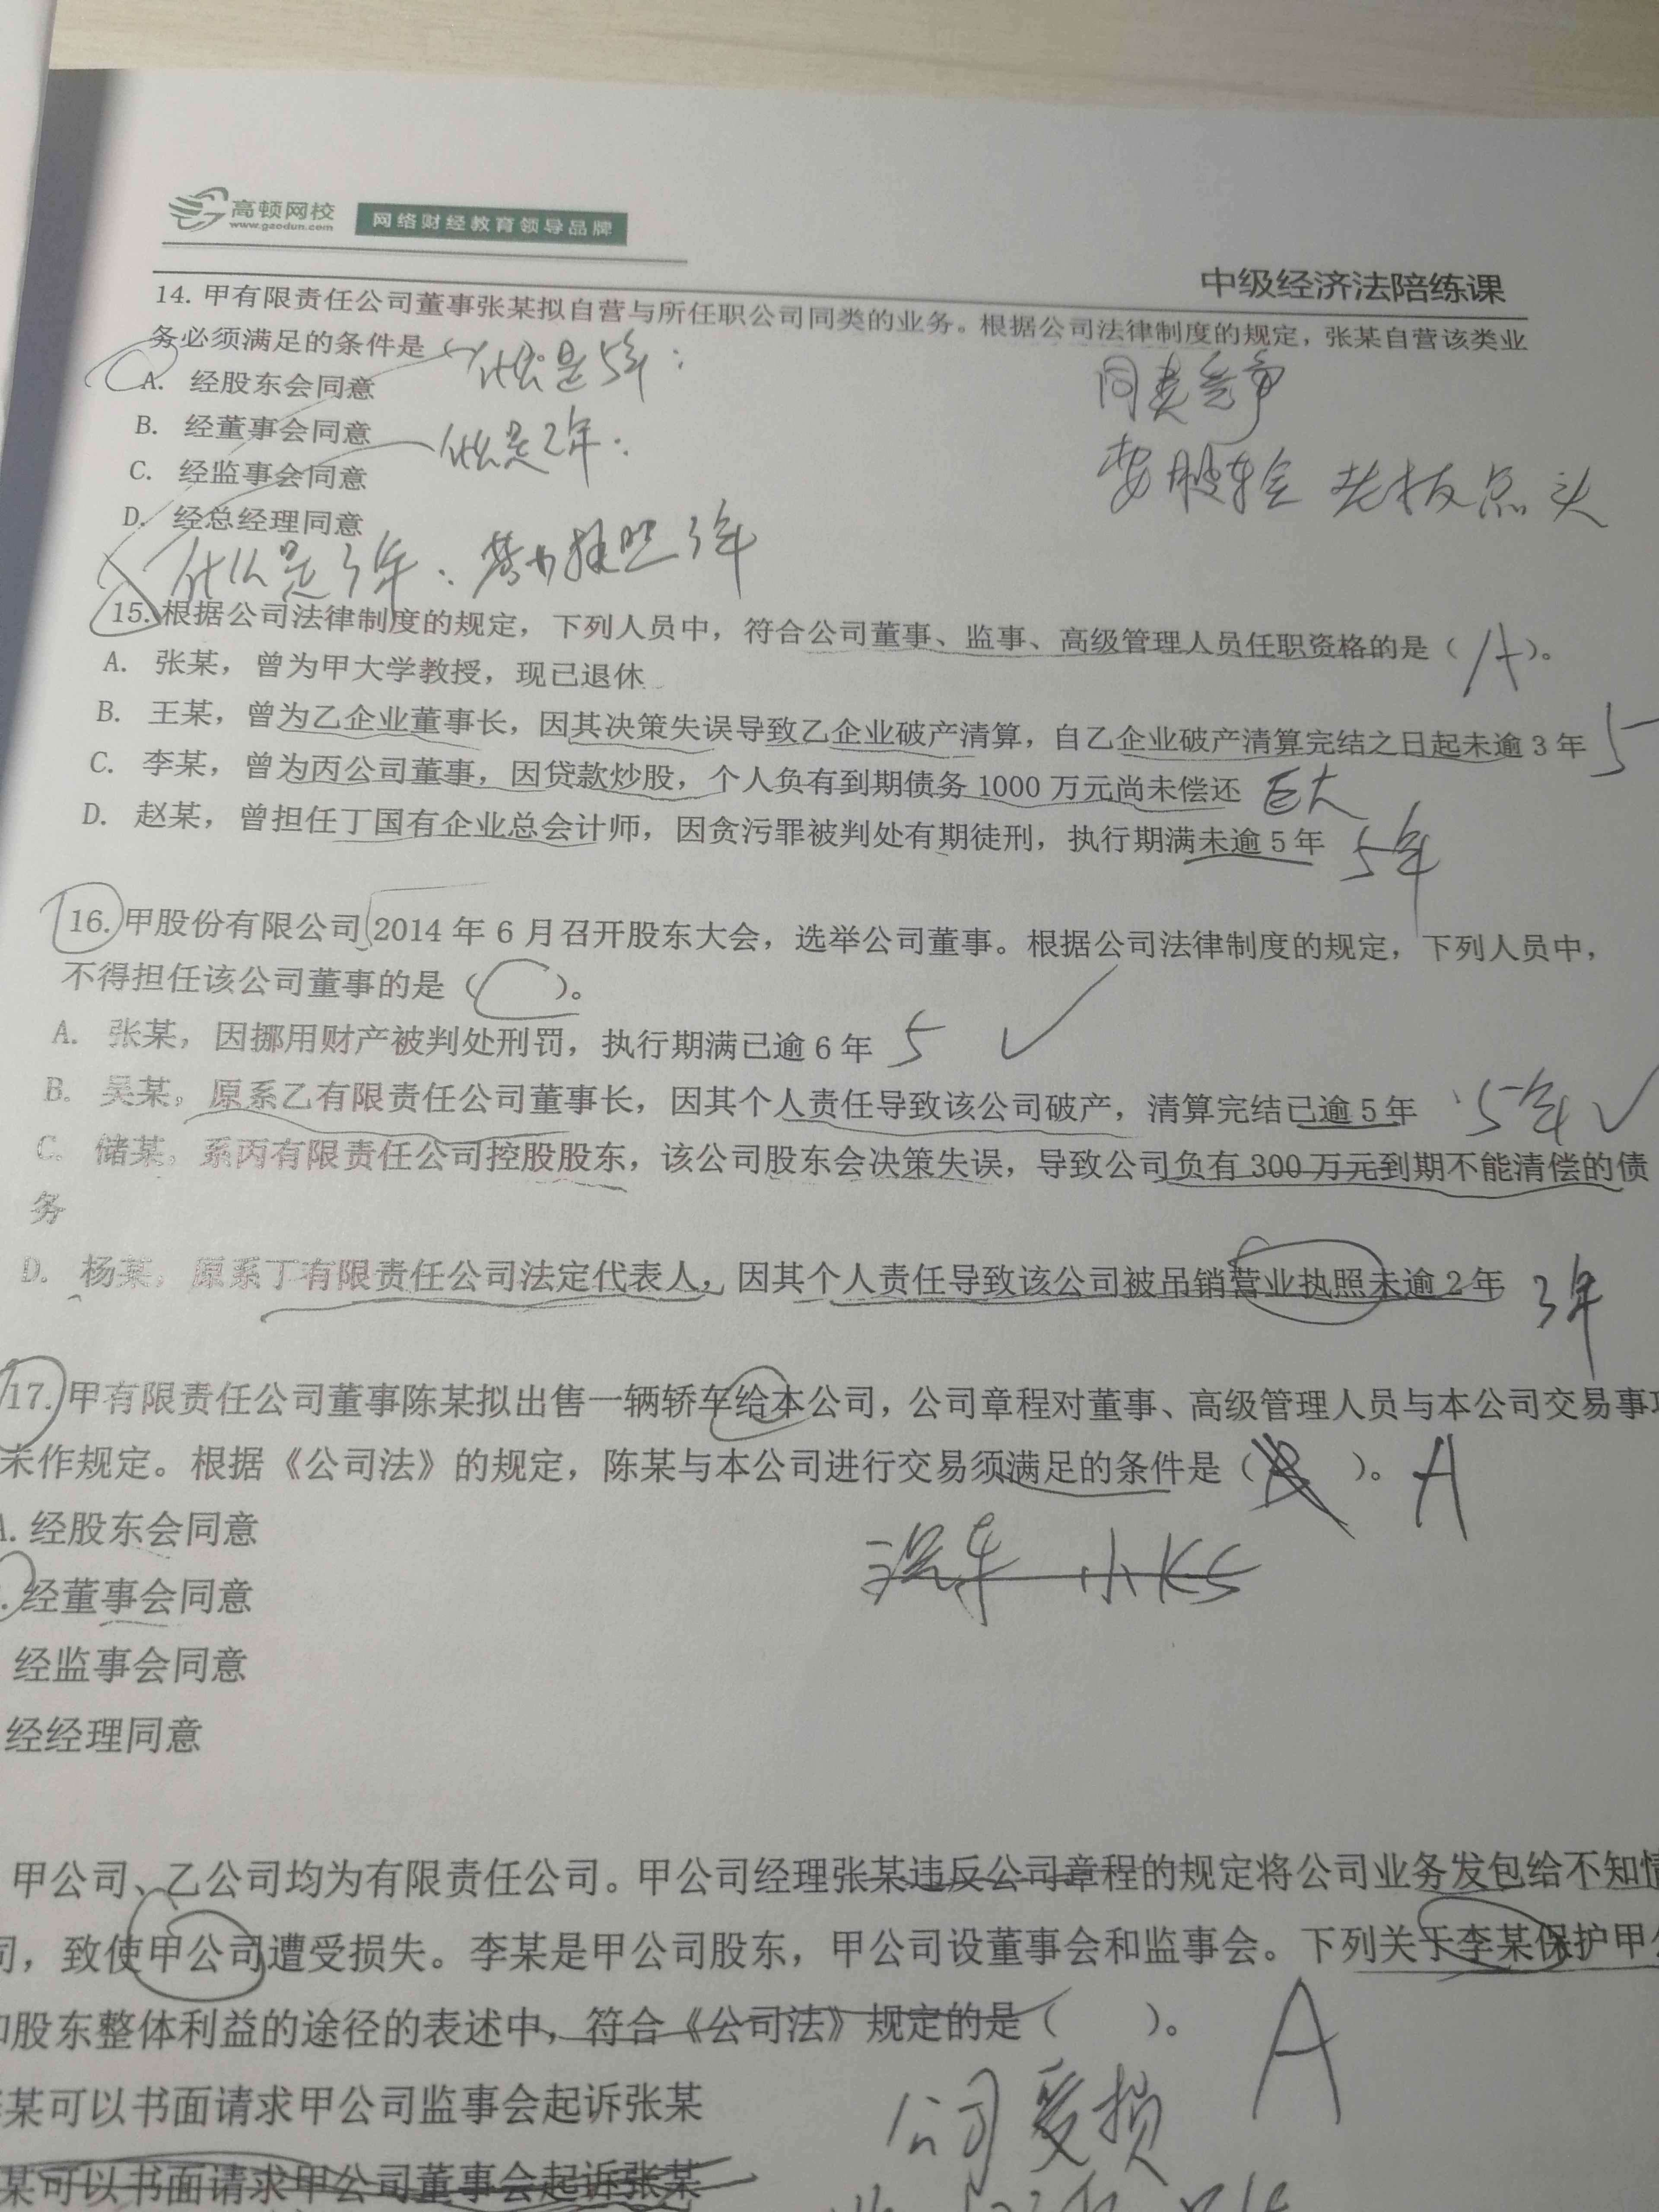 高顿网校
www.gaodun.com
网络财经教育领导品牌
中级经济法陪练课
14. 甲有限责任公司董事张某拟自营与所任职公司同类的业务。根据公司法律制度的规定，张某自营该类业
务必须满足的条件是
什么是5年：
A. 经股东会同意
同类竞争
B. 经董事会同意
什么是2年：
C. 经监事会同意
要股东会 老板点头
D. 经总经理同意
什么是3年：营业执照3年
15. 根据公司法律制度的规定，下列人员中，符合公司董事、监事、高级管理人员任职资格的是（A）。
A. 张某，曾为甲大学教授，现已退休
B. 王某，曾为乙企业董事长，因其决策失误导致乙企业破产清算，自乙企业破产清算完结之日起未逾3年
C. 李某，曾为丙公司董事，因贷款炒股，个人负有到期债务1000万元尚未偿还 巨大
D. 赵某，曾担任丁国有企业总会计师，因贪污罪被判处有期徒刑，执行期满未逾5年 5年
16. 甲股份有限公司2014年6月召开股东大会，选举公司董事。根据公司法律制度的规定，下列人员中，
不得担任该公司董事的是（ ）。
A. 张某，因挪用财产被判处刑罚，执行期满已逾6年 5 ✓
B. 吴某，原系乙有限责任公司董事长，因其个人责任导致该公司破产，清算完结已逾5年 5年✓
C. 储某，系丙有限责任公司控股股东，该公司股东会决策失误，导致公司负有300万元到期不能清偿的债
务
D. 杨某，原系丁有限责任公司法定代表人，因其个人责任导致该公司被吊销营业执照未逾2年 3年
17. 甲有限责任公司董事陈某拟出售一辆轿车给本公司，公司章程对董事、高级管理人员与本公司交易事项
未作规定。根据《公司法》的规定，陈某与本公司进行交易须满足的条件是（ ）。 A
A. 经股东会同意
经董事会同意
经监事会同意
经经理同意
甲公司、乙公司均为有限责任公司。甲公司经理张某违反公司章程的规定将公司业务发包给不知情
司，致使甲公司遭受损失。李某是甲公司股东，甲公司设董事会和监事会。下列关于李某保护甲公
和股东整体利益的途径的表述中，符合《公司法》规定的是（ ）。 A
某可以书面请求甲公司监事会起诉张某
公司受损
某可以书面请求甲公司董事会起诉张某